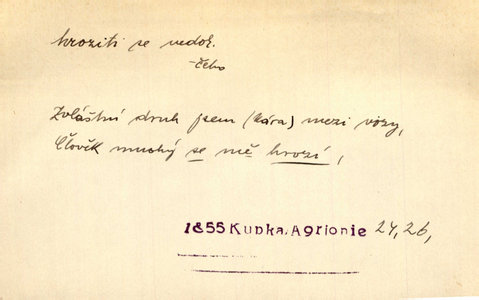 hroziti se nedok.
-čeho
Zvláštní druh jsem (kára) mezi vozy,
Člověk mnohý se mě hrozí,
1855 Kupka, Agrionie 24, 26,